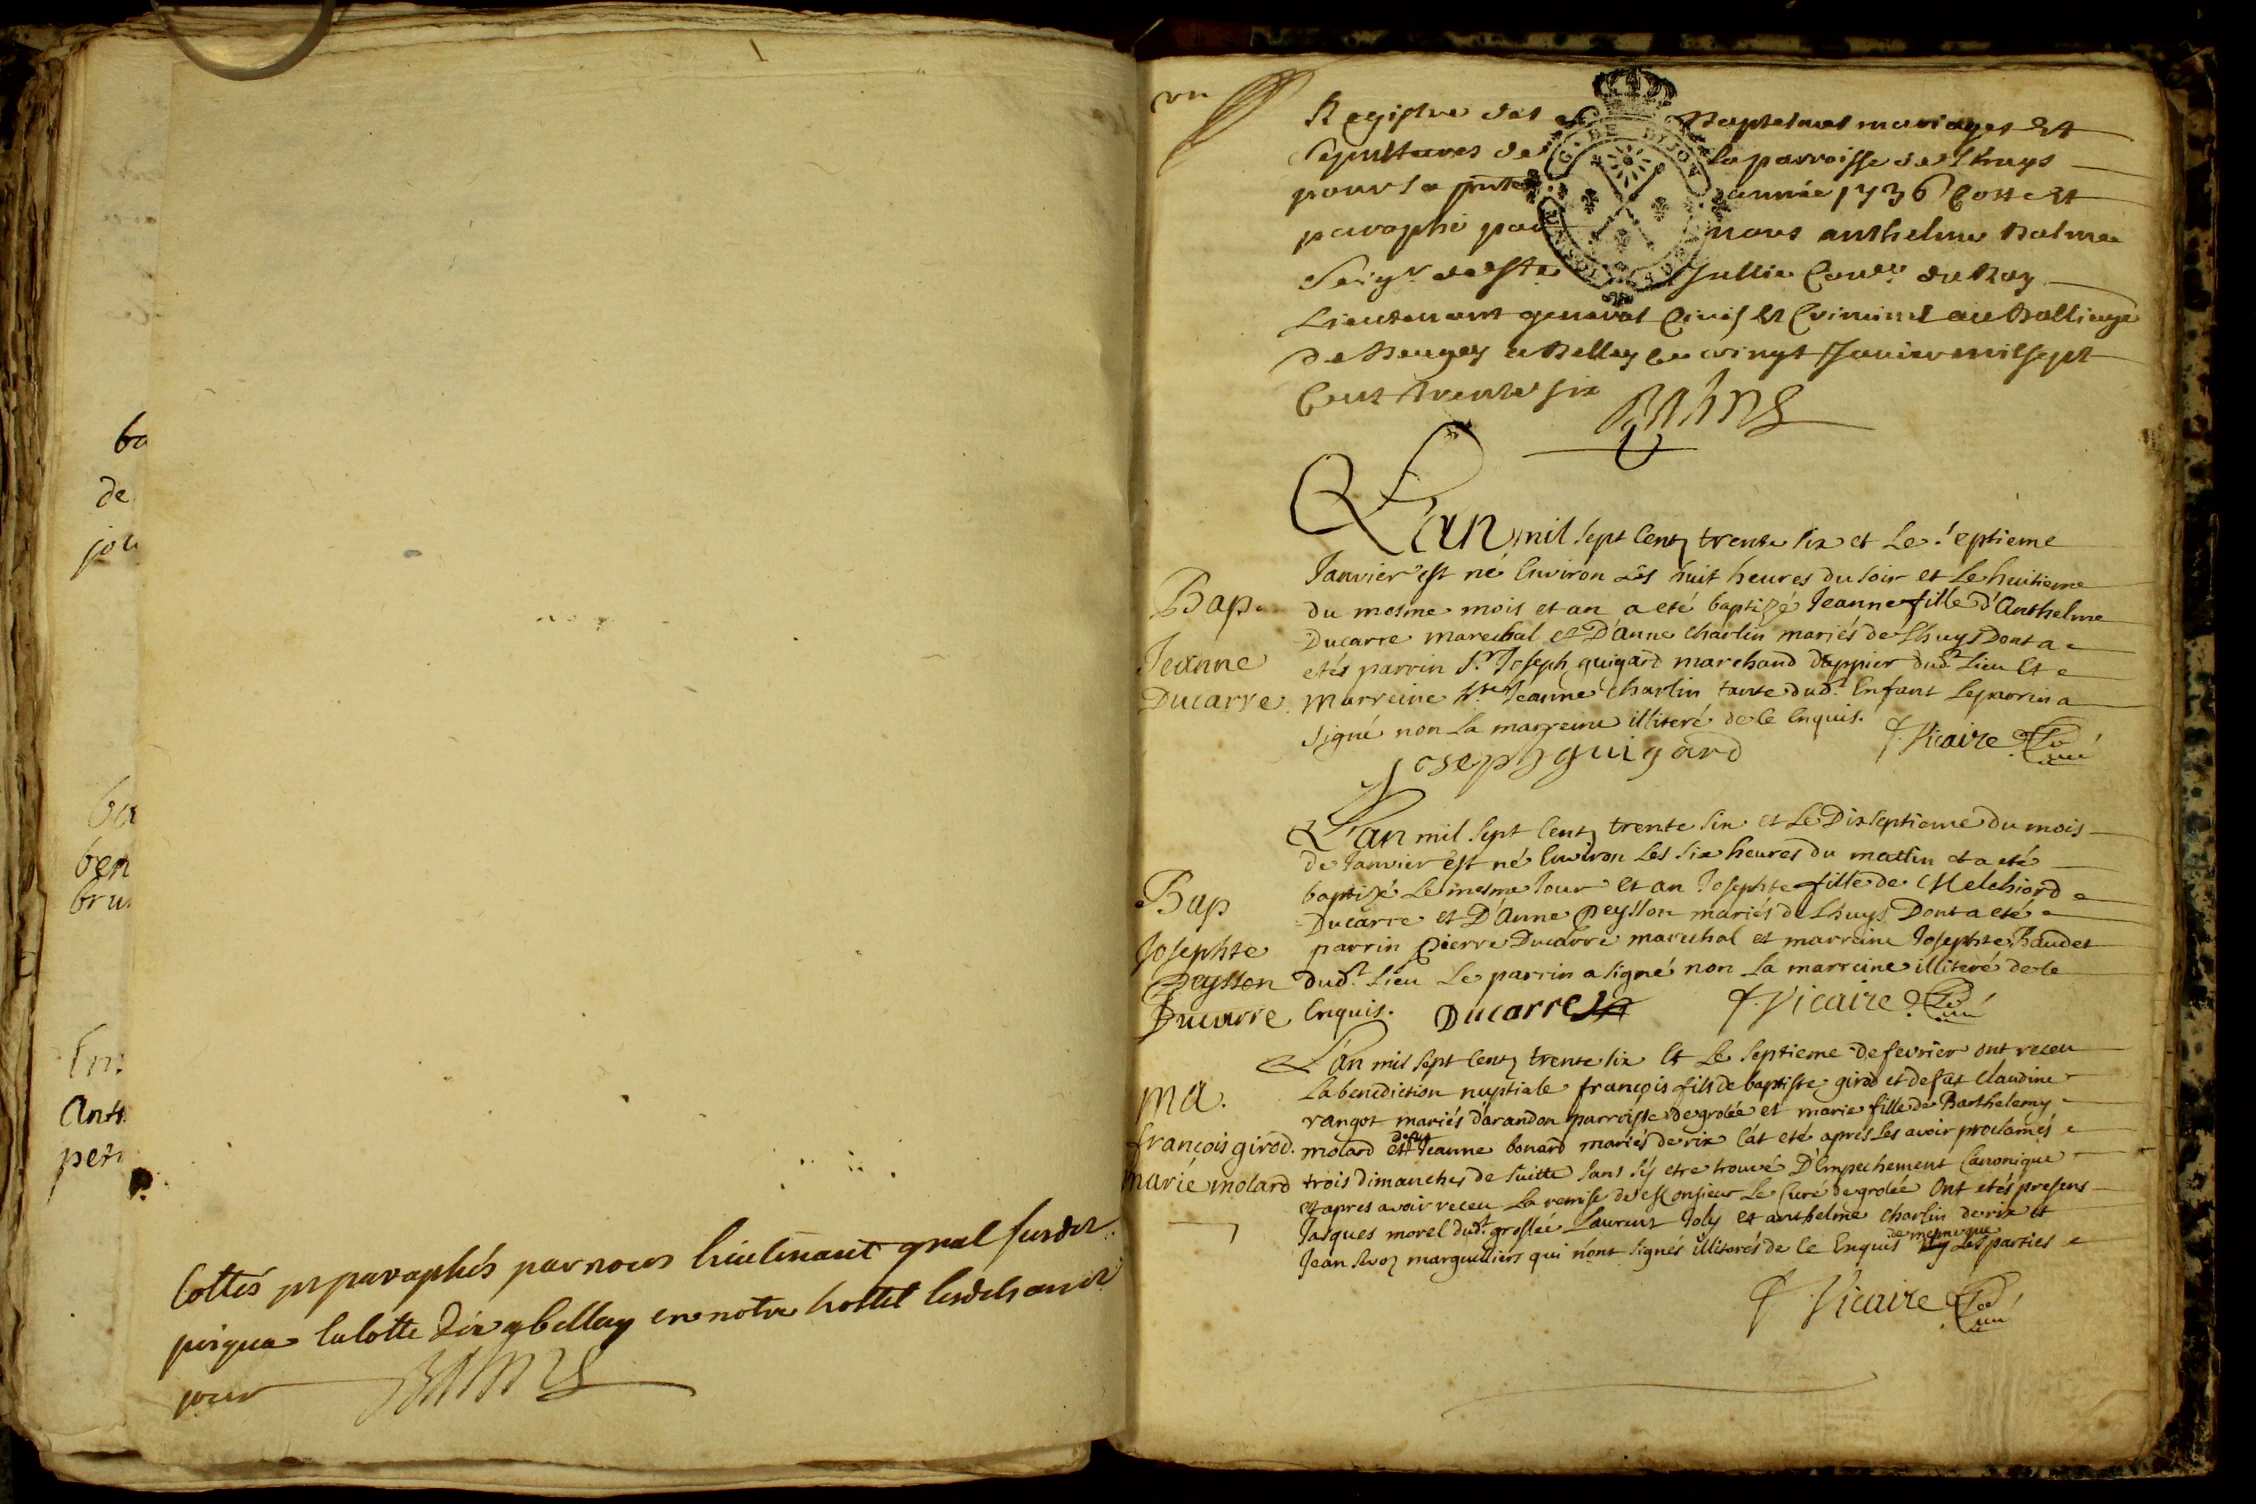 1
ba
de
jou
ba
ben
bru
Ant
per
Cottés et paraphés par nous lieutenant gnal susdit
jusque la cotte dix a bellay en notre hottel lesdits an et
jour
Balme
un
Registre des Baptesmes mariages et
sepultures de la parroisse de Lhuys
pour la pnte année 1736 Cotté et
paraphé par nous anthelme Balme
Seigr de Ste Jullie Conler du Roy
Lieutenant general Civil et Criminel au Balliage
de Beugey a Belley ce vingt Janvier mil sept
cent trente six
Balme
G. DE DIJON
L'an mil sept centz trente six et Le septieme
Janvier est né environ Les huit heures du soir et Le huitieme
du mesme mois et an a eté baptizé Jeanne fille d'Anthelme
Ducarre marechal et D'anne Charlin mariés de Lhuys Dont a
etés parrin Sr Joseph guigard marchand drappier dudt Lieu Et
Marreine Jeanne Charlin tante dudt Enfant Le parrin a
signé non La marreine illiteré de ce Enquis.
Bap.
Jeanne
Ducarre
Joseph guigard
Vicaire
L'an mil sept centz trente six et Le Dix septieme du mois
de Janvier est né Environ Les six heures du mattin et a eté
baptizé Le mesme Jour et an Josephte fille de Melchiord
Ducarre et D'Anne Peysson mariés de Lhuys Dont a eté
parrin Pierre Ducarre mareschal et marreine Josephte Baudet
dudt Lieu Le parrin a signé non La marreine illiteré de ce
Enquis.
Bap
Josephte
Peysson
Ducarre
Ducarre
Vicaire
L'an mil sept centz trente six Et Le septieme de fevrier ont receu
La benediction nuptiale françois fils de baptiste girod et defut Claudine
rangot mariés d'arandon parroisse de grolée et marie fille de Barthelemy
molard et defut Jeanne bonard mariés de rix C'at eté aprés Les avoir proclamés
trois dimanches de suitte sans s'y etre trouvé D'Empechement Canonique
Et apres avoir receu La remise de Monsieur Le Curé de grolée Ont etés presens
Jasques morel dudt grollée Laurent Joly et anthelme Charlin de rix et
Jean marguilliers qui n'ont signés illiterés de ce Enquis de mesme que Les parties
ma.
françois girod.
marie molard
Vicaire